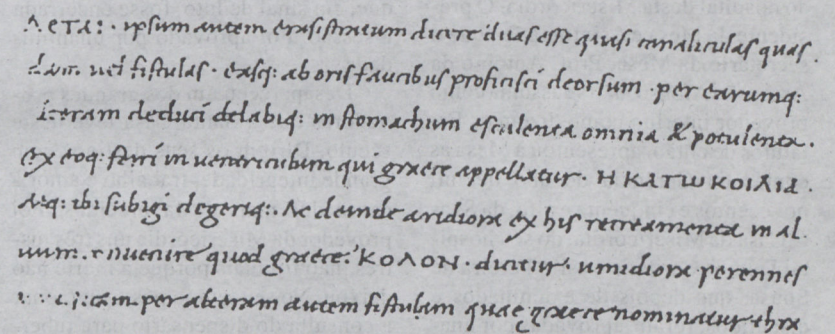 ΛΕΤΑ: · ipsum autem erasistratum dicere duas esse quasi canaliculas quas·
dam uel fistulas · easq: ab oris faucibus proficisci deorsum · per earumq:
iteram deduci delabiq: in stomachum esculenta omnia & potulenta ·
ex eoq: ferri in uentriculum qui graece appellatur · Η ΚΑΤΩ ΚΟΙΛΙΑ
Atq: ibi subigi degeriq: · Ac deinde aridiora ex his recreamenta in al·
uum · conuenire quod graece: ΚΟΛΟΝ · dicitur umidiora per renes
per alteram autem fistulam quae graece nominatur thra